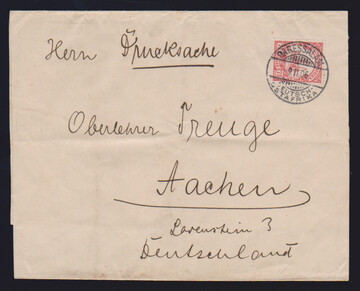 Hern Drucksache
DARESSALAM
DEUTSCH-
OSTAFRIKA
Oberlehrer Treuge
Aachen
Lorenstein 3
Deutschland